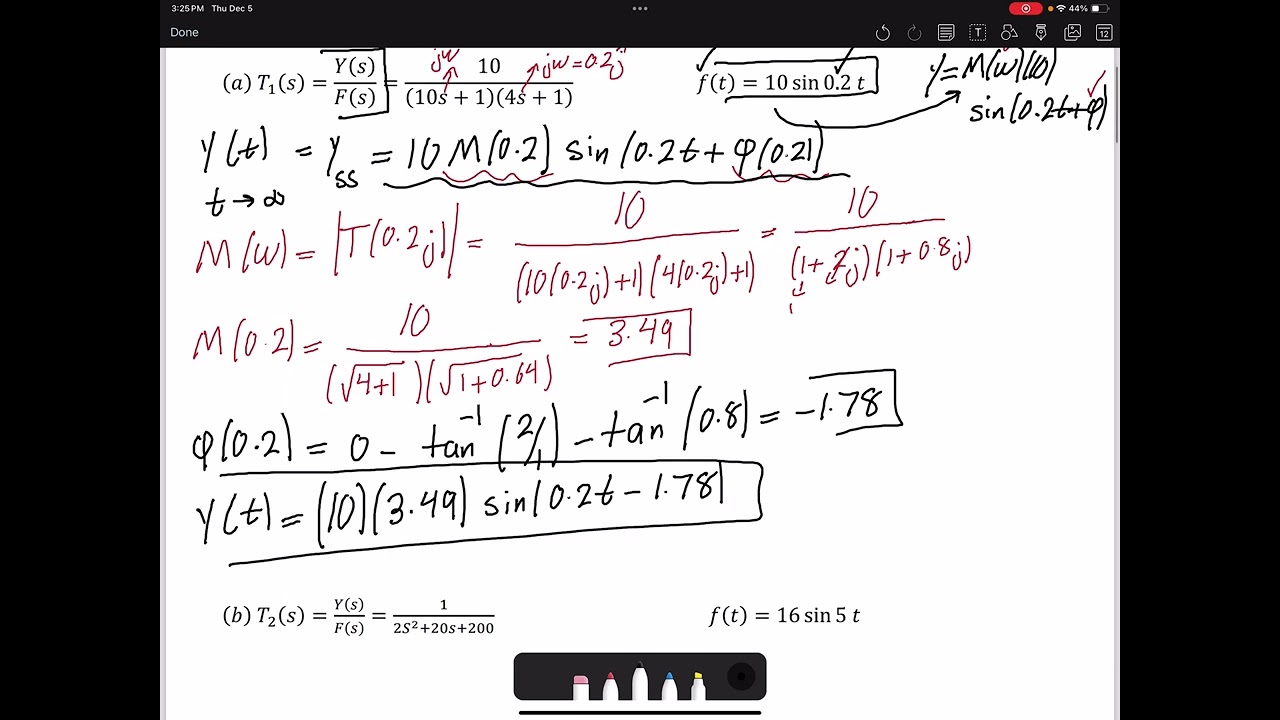 3:25 PM Thu Dec 5
44%
Done
T
12
(a) T₁(s) = Y(s)/F(s) = 10/((10s + 1)(4s + 1))
jw
jw = 0.2j
f(t) = 10 sin 0.2 t
y = M(w)(10)
sin(0.2t+φ)
Y(t) = Yss = 10 M(0.2) sin(0.2t + φ(0.2))
t → ∞
M(w) = |T(0.2j)| = 10/((10(0.2j)+1)(4(0.2j)+1)) = 10/((1+2j)(1+0.8j))
M(0.2) = 10/((√4+1)(√1+0.64)) = 3.49
φ(0.2) = 0 - tan⁻¹(2/1) - tan⁻¹(0.8) = -1.78
Y(t) = (10)(3.49) sin(0.2t - 1.78)
(b) T₂(s) = Y(s)/F(s) = 1/(2S²+20s+200)
f(t) = 16 sin 5 t